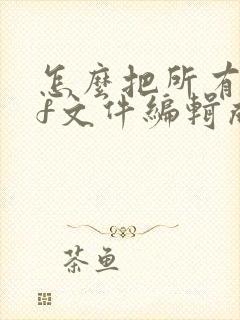 怎麼把所有
f文件編輯成
茶魚